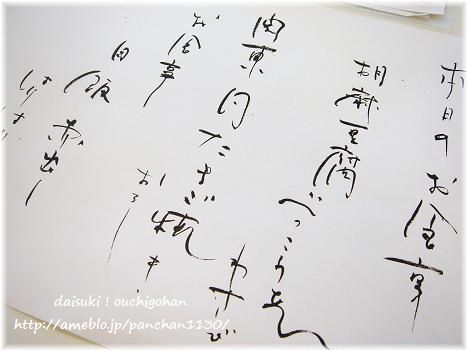 本日のお食事
胡麻豆腐 べっこうあん
わさび
関東風たまご焼
おろし
お食事
白飯 赤出し
daisuki ! ouchigohan
http://ameblo.jp/panchan1130/